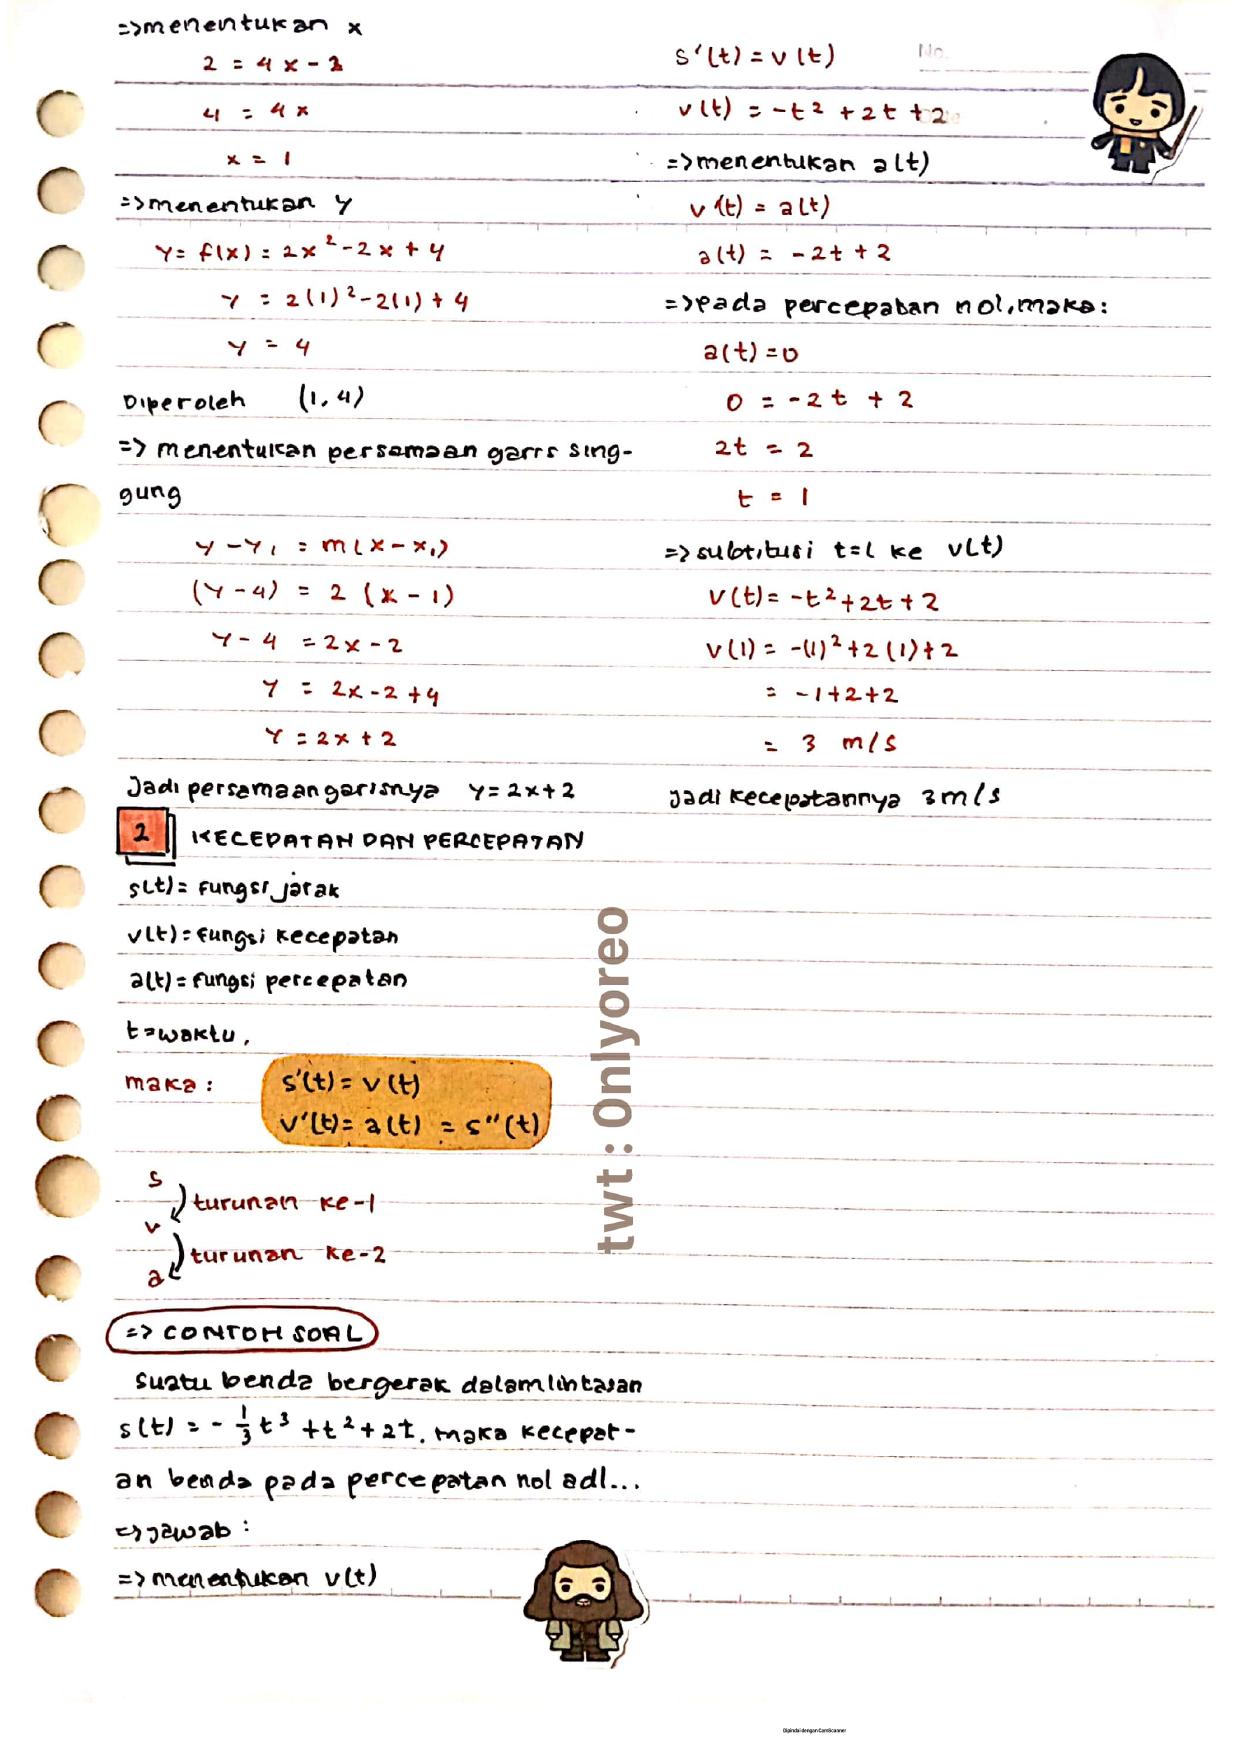 => menentukan x
2 = 4x - 2
4 = 4x
x = 1
=> menentukan y
y = f(x) = 2x² - 2x + 4
y = 2(1)² - 2(1) + 4
y = 4
Diperoleh (1, 4)
=> menentukan persamaan garis sing-
gung
y - y₁ = m(x - x₁)
(y - 4) = 2 (x - 1)
y - 4 = 2x - 2
y = 2x - 2 + 4
y = 2x + 2
Jadi persamaan garisnya y = 2x + 2
2 KECEPATAN DAN PERCEPATAN
s(t) = fungsi jarak
v(t) = fungsi kecepatan
a(t) = fungsi percepatan
t = waktu,
maka :
s'(t) = v(t)
v'(t) = a(t) = s''(t)
s
turunan ke-1
v
turunan ke-2
a
=> CONTOH SOAL
suatu benda bergerak dalam lintasan
s(t) = - 1/3 t³ + t² + 2t. maka kecepat-
an benda pada percepatan nol adl...
=> jawab :
=> menentukan v(t)
No.
s'(t) = v(t)
v(t) = -t² + 2t + 2
=> menentukan a(t)
v'(t) = a(t)
a(t) = -2t + 2
=> pada percepatan nol, maka :
a(t) = 0
0 = -2t + 2
2t = 2
t = 1
=> subtitusi t=1 ke v(t)
v(t) = -t² + 2t + 2
v(1) = -(1)² + 2(1) + 2
= -1+2+2
= 3 m/s
Jadi kecepatannya 3 m/s
twt : Onlyoreo
Dipindai dengan CamScanner